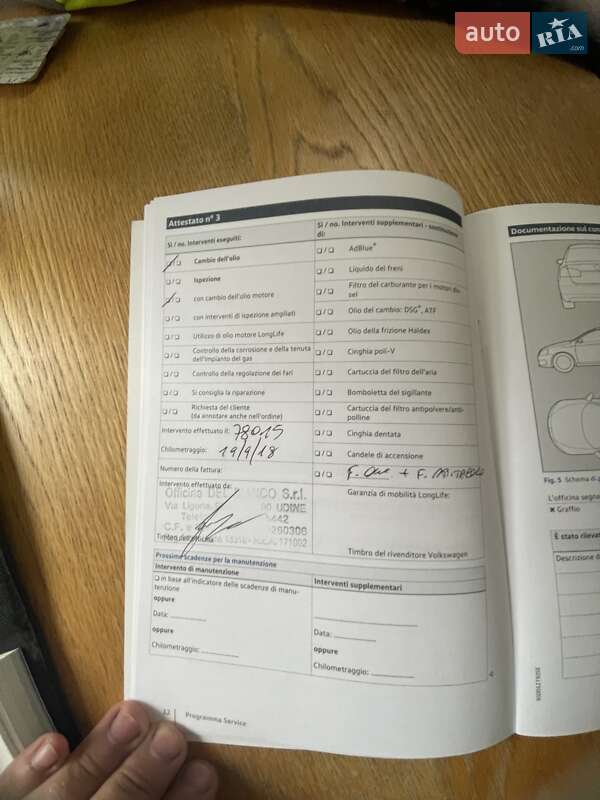 auto RIA .com
Attestato n° 3
Sì / no. Interventi eseguiti:
Cambio dell'olio
Ispezione
con cambio dell'olio motore
con interventi di ispezione ampliati
Utilizzo di olio motore LongLife
Controllo della corrosione e della tenuta dell'impianto del gas
Controllo della regolazione dei fari
Si consiglia la riparazione
Richiesta del cliente
(da annotare anche nell'ordine)
Intervento effettuato il: 78015
Chilometraggio: 19/9/18
Numero della fattura:
Intervento effettuato da:
Officina S.r.l.
Via UDINE
C.F. e
Sì / no. Interventi supplementari - sostituzione di:
AdBlue®
Liquido dei freni
Filtro del carburante per i motori diesel
Olio del cambio: DSG®, ATF
Olio della frizione Haldex
Cinghia poli-V
Cartuccia del filtro dell'aria
Bomboletta del sigillante
Cartuccia del filtro antipolvere/antipolline
Cinghia dentata
Candele di accensione
Garanzia di mobilità LongLife:
Timbro del rivenditore Volkswagen
Prossime scadenze per la manutenzione
Intervento di manutenzione
in base all'indicatore delle scadenze di manutenzione
oppure
Data:
oppure
Chilometraggio:
Interventi supplementari
Data:
oppure
Chilometraggio:
12 Programma Service
Documentazione sul con
Fig. 5 Schema di
L'officina segn
✖ Graffio
È stato rileva
Descrizione d